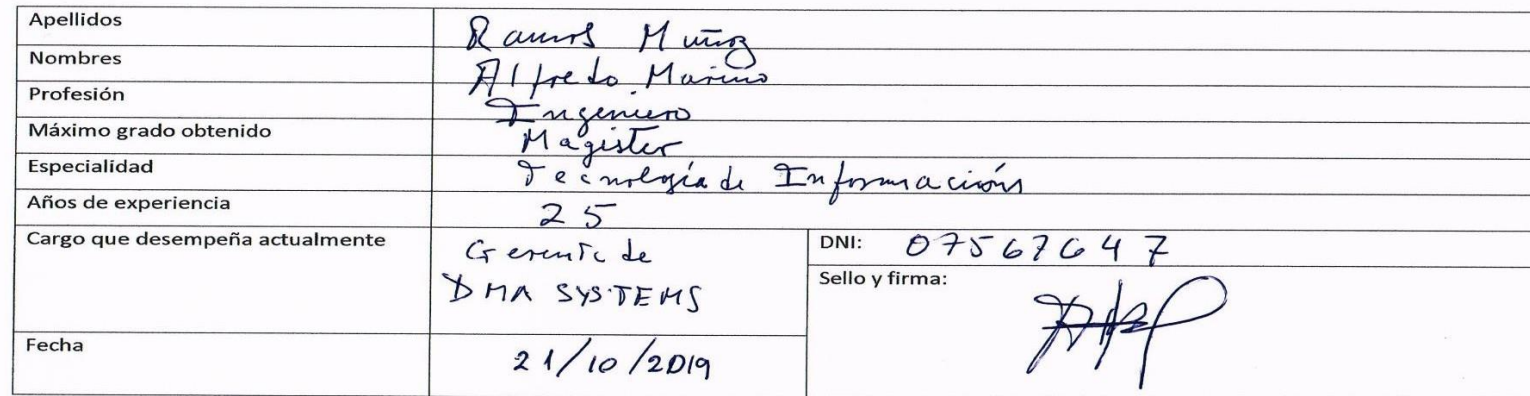 Apellidos Ramos Muñoz
Nombres Alfredo Marino
Profesión Ingeniero
Máximo grado obtenido Magister
Especialidad Tecnología de Información
Años de experiencia 25
Cargo que desempeña actualmente Gerente de
DMA SYSTEMS
DNI: 07567647
Sello y firma:
Fecha 21/10/2019